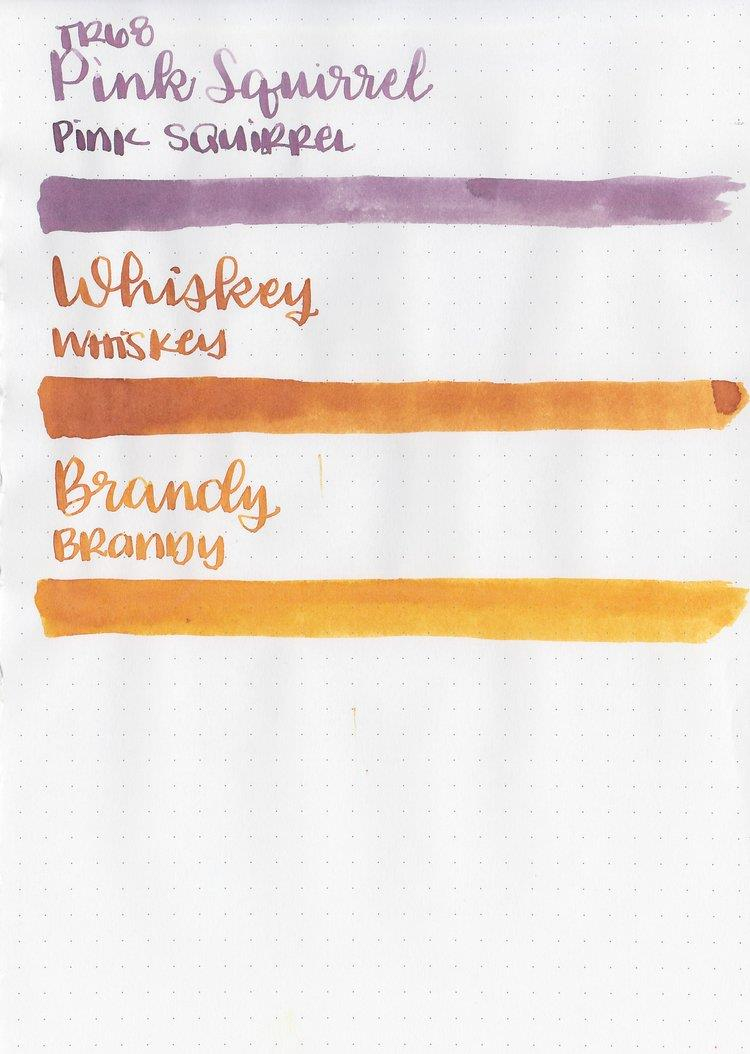 TR68
Pink Squirrel
Pink SQUiRRel
Whiskey
WHiSKey
Brandy
BRanDy